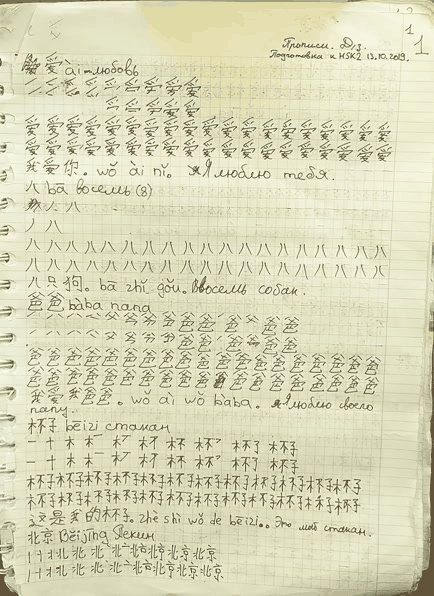 1
1
Прописи. Д/з.
Подготовка к HSK2 13.10.2019.
爱 ài - любовь
爱 爱 爱 爱 爱 爱 爱 爱 爱 爱 爱 爱 爱 爱 爱 爱 爱 爱
爱 爱 爱 爱 爱 爱 爱 爱 爱 爱 爱 爱 爱 爱 爱 爱 爱 爱
我爱你。wǒ ài nǐ. Я люблю тебя.
八 bā восемь (8)
八 八
八
八 八 八 八 八 八 八 八 八 八 八 八 八 八 八 八 八 八
八 八 八 八 八 八 八 八 八 八 八 八 八 八 八 八 八 八
八只狗。bā zhī gǒu. восемь собак.
爸爸 bàba папа
爸 爸 爸 爸 爸 爸 爸 爸 爸 爸 爸 爸 爸 爸 爸 爸
爸 爸 爸 爸 爸 爸 爸 爸 爸 爸 爸 爸 爸 爸 爸 爸
我爱我爸爸。wǒ ài wǒ bàba. Я люблю своего
папу.
杯子 bēizi стакан
一 十 木 木 杯 杯 杯子 杯子
一 十 木 木 杯 杯 杯子 杯子
杯子杯子杯子杯子杯子杯子杯子杯子杯子杯子
杯子杯子杯子杯子杯子杯子杯子杯子杯子杯子
这是我的杯子。zhè shì wǒ de bēizi. Это мой стакан.
北京 Běijīng Пекин
北 北 北京北京北京
北 北 北京北京北京